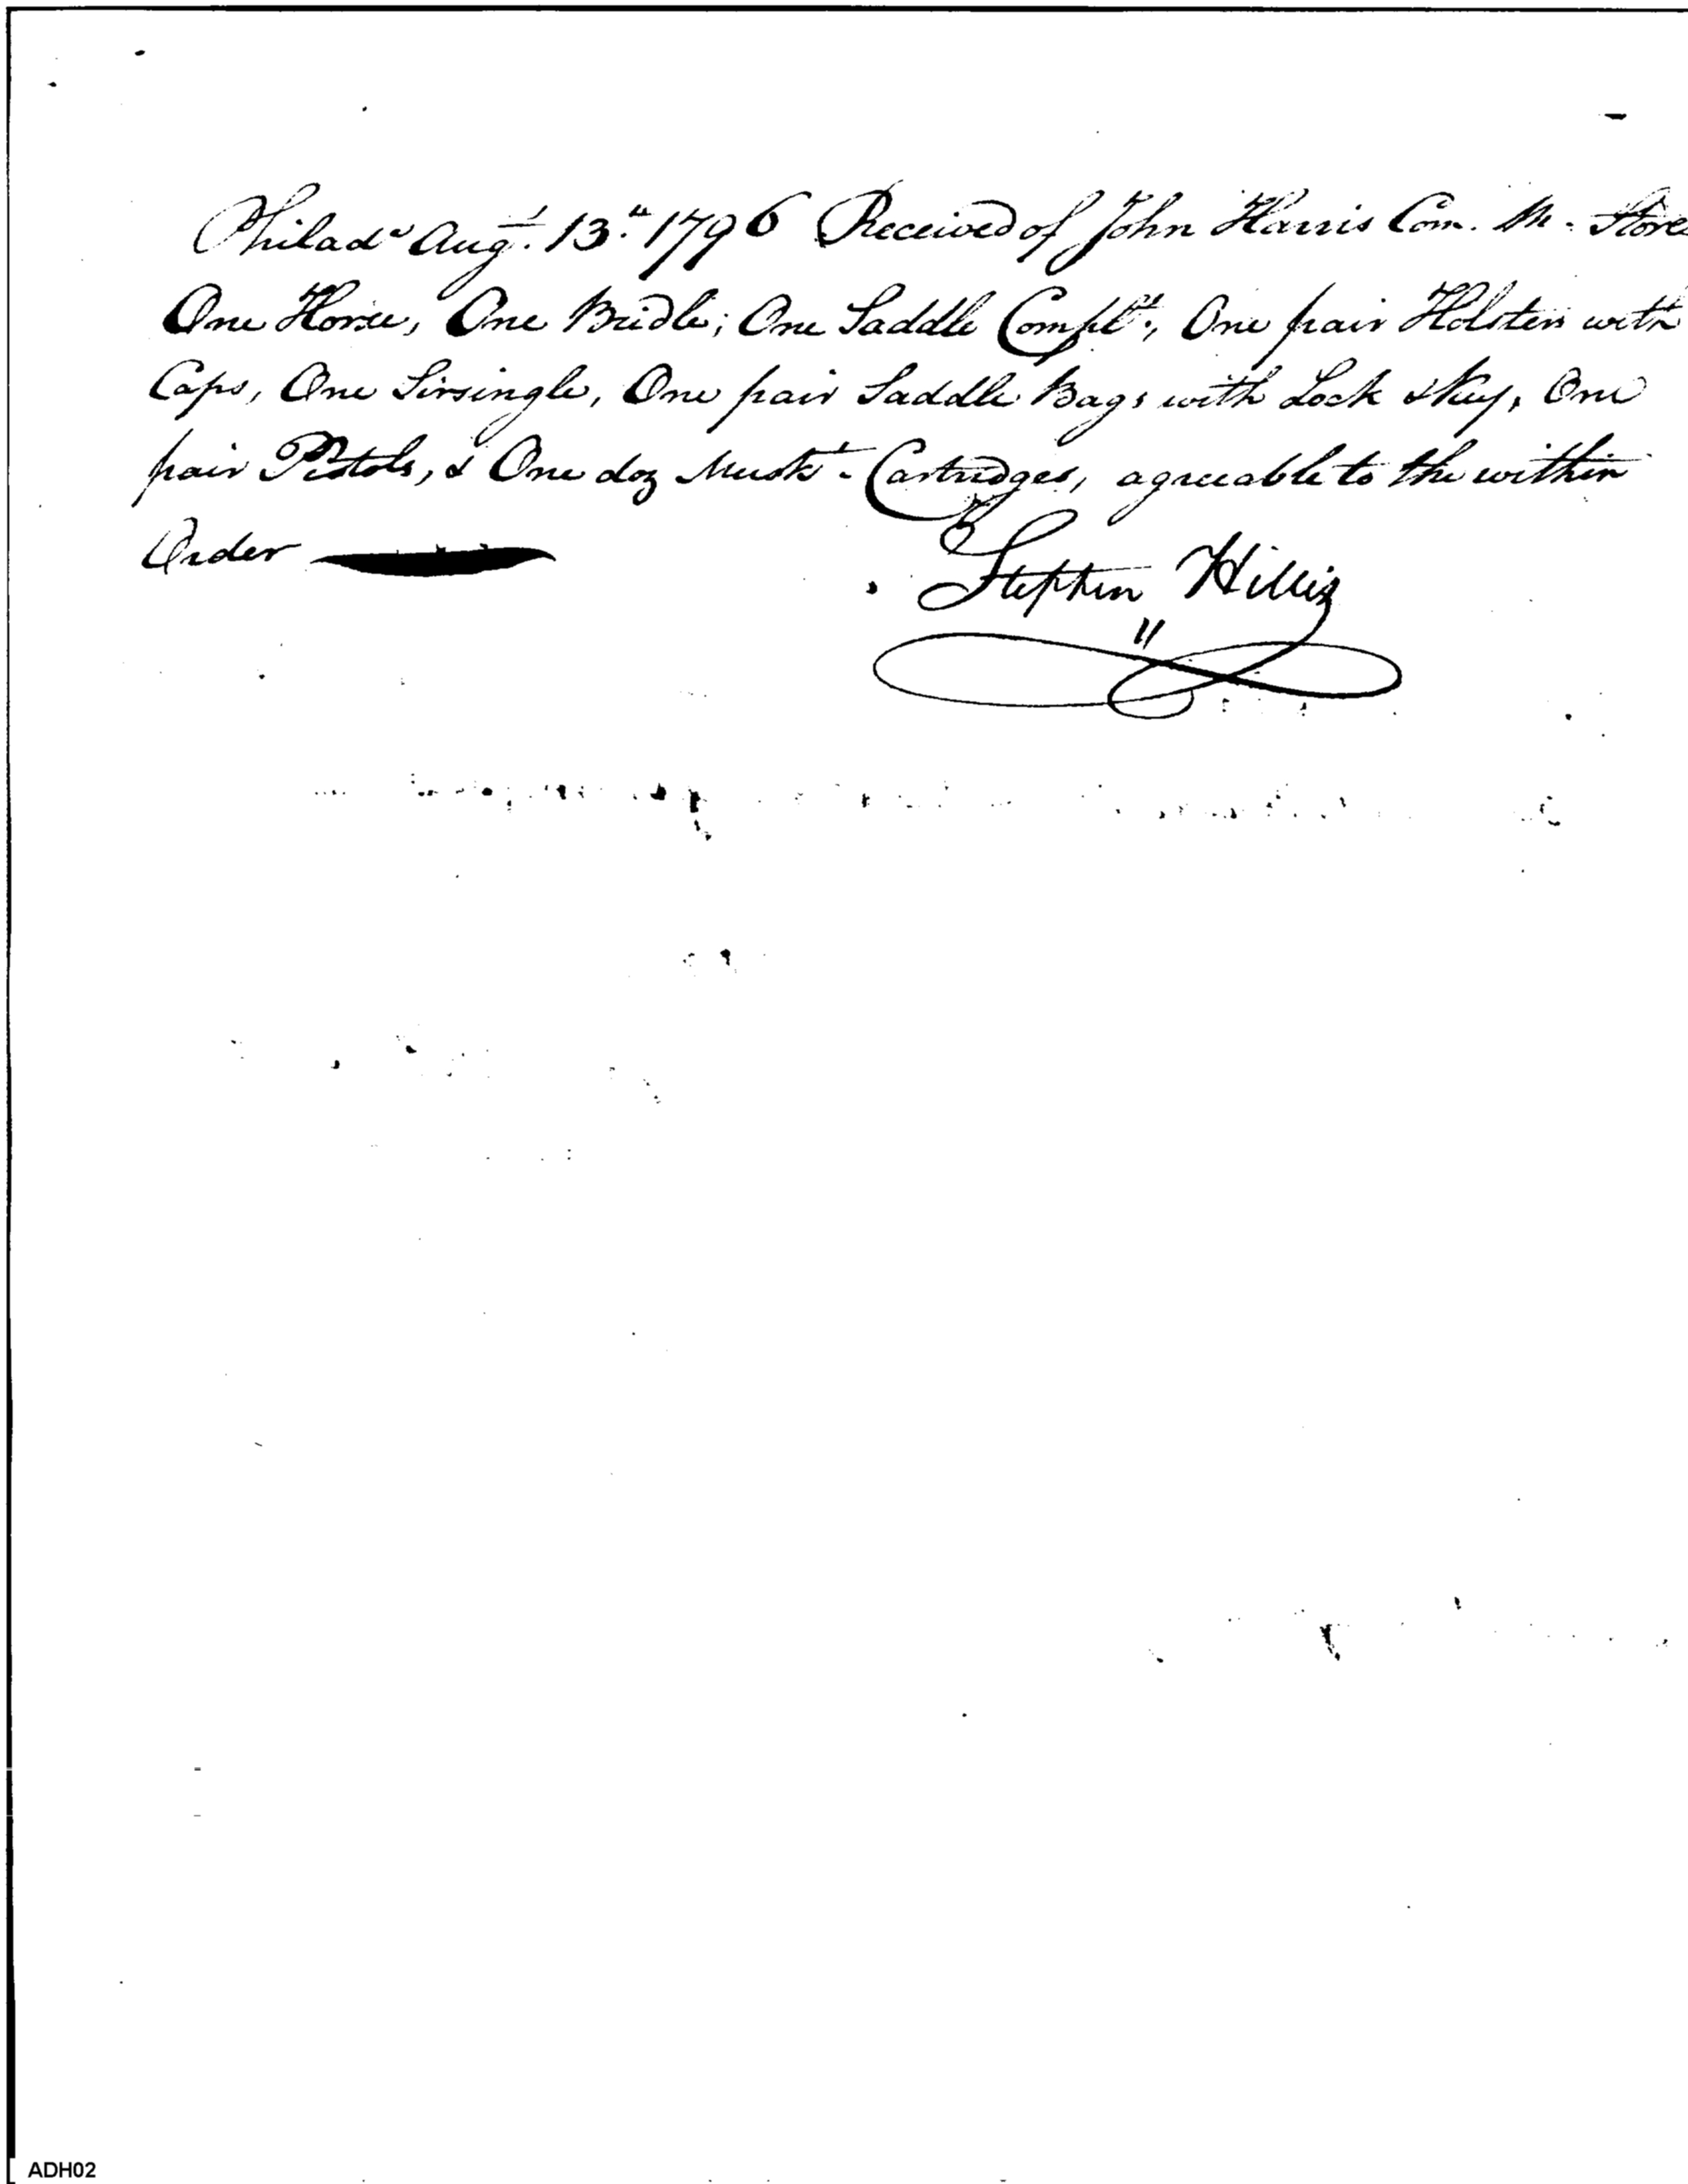 Philada Augt. 13th 1796 Received of John Harris Com. M. Stores
One Horse, One Bridle; One Saddle Complt., One pair Holsters with
Caps, One Sirsingle, One pair Saddle Bags with Lock & Key, One
pair Pistols, & One doz Muskt Cartridges, agreeable to the within
Order
Stephen Hillis
ADH02